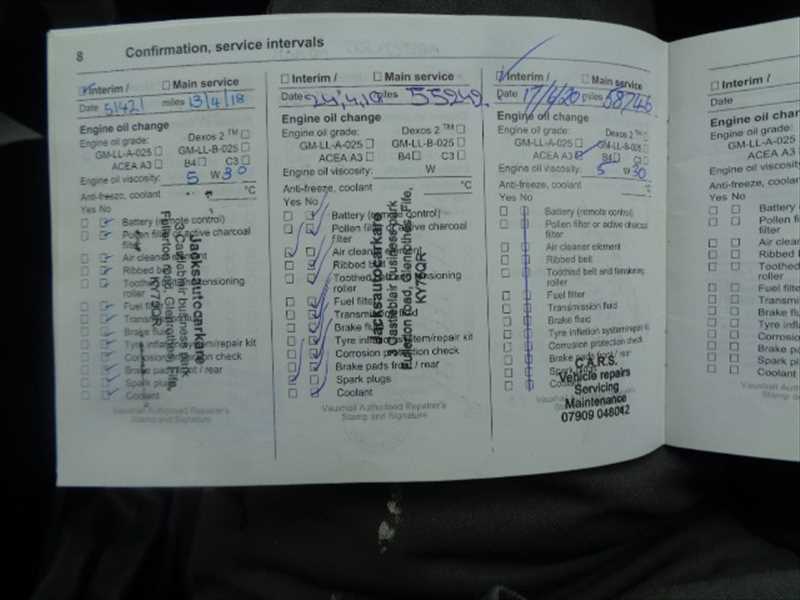 8 Confirmation, service intervals
Interim / Main service
Date 51421 miles 13/4/18
Engine oil change
Engine oil grade: Dexos 2 TM
GM-LL-A-025 GM-LL-B-025
ACEA A3 B4 C3
Engine oil viscosity: 5 W 30
Anti-freeze, coolant °C
Yes No
Battery (remote control)
Pollen filter or active charcoal
filter
Air cleaner element
Ribbed belt
Toothed tensioning
roller
Fuel filter
Transmission fluid
Brake fluid
Tyre inflation system/repair kit
Corrosion protection check
Brake pads front / rear
Spark plugs
Coolant
Vauxhall Authorised Repairer's
Stamp and Signature
Jacksautocarkare
3 Castleblair business park
Fullerton road, Glenrothes, Fife,
KY75QR
Interim / Main service
Date miles 55249
Engine oil change
Engine oil grade: Dexos 2 TM
GM-LL-A-025 GM-LL-B-025
ACEA A3 B4 C3
Engine oil viscosity: W
Anti-freeze, coolant °C
Yes No
Battery (remote control)
Pollen filter or active charcoal
filter
Air cleaner element
Ribbed belt
Toothed tensioning
roller
Fuel filter
Transmission fluid
Brake fluid
Tyre inflation system/repair kit
Corrosion protection check
Brake pads front / rear
Spark plugs
Coolant
Vauxhall Authorised Repairer's
Stamp and Signature
Jacksautocarkare
3 Castleblair business park
Fullerton Road, Glenrothes, Fife,
KY75QR
Interim / Main service
Date 17/6/20 miles 58746
Engine oil change
Engine oil grade: Dexos 2 TM
GM-LL-A-025 GM-LL-B-025
ACEA A3 B4 C3
Engine oil viscosity: 5 W 30
Anti-freeze, coolant °C
Yes No
Battery (remote control)
Pollen filter or active charcoal
filter
Air cleaner element
Ribbed belt
Toothed belt and tensioning
roller
Fuel filter
Transmission fluid
Brake fluid
Tyre inflation system/repair kit
Corrosion protection check
Brake pads front / rear
Spark
C.A.R.S.
Vehicle repairs
Servicing
Maintenance
07909 048042
Interim /
Date
Engine oil change
Engine oil grade:
GM-LL-A
ACEA
Engine oil viscos
Anti-freeze, coola
Yes No
Battery
Pollen
filter
Air clean
Ribbed
Toothed
roller
Fuel filt
Transmi
Brake flu
Tyre infl
Corrosio
Brake pa
Spark pl
Coolant
Vauxhall
Stamp